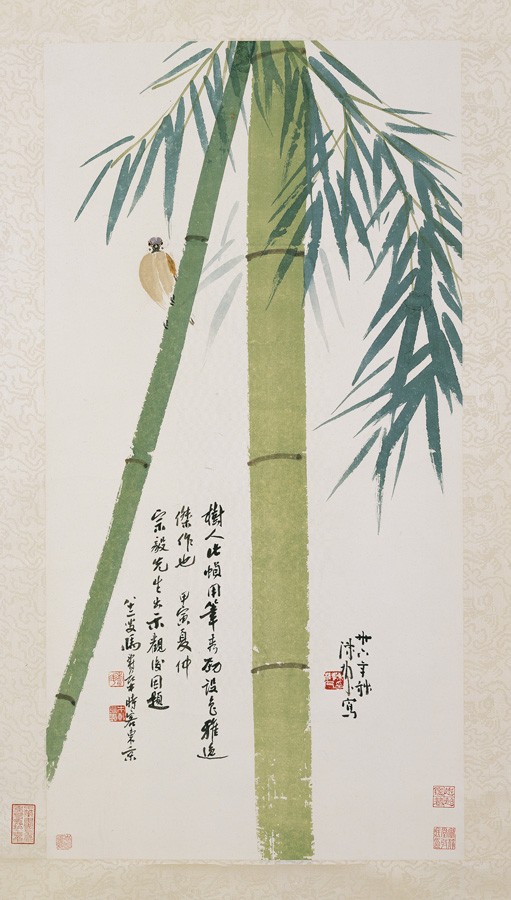 樹人此幀用筆奇勁設色雅逸
傑作也 甲寅夏仲
宗毅先生出示觀後因題
八十一叟馬壽華時客東京
卅六年秋
陳樹人寫